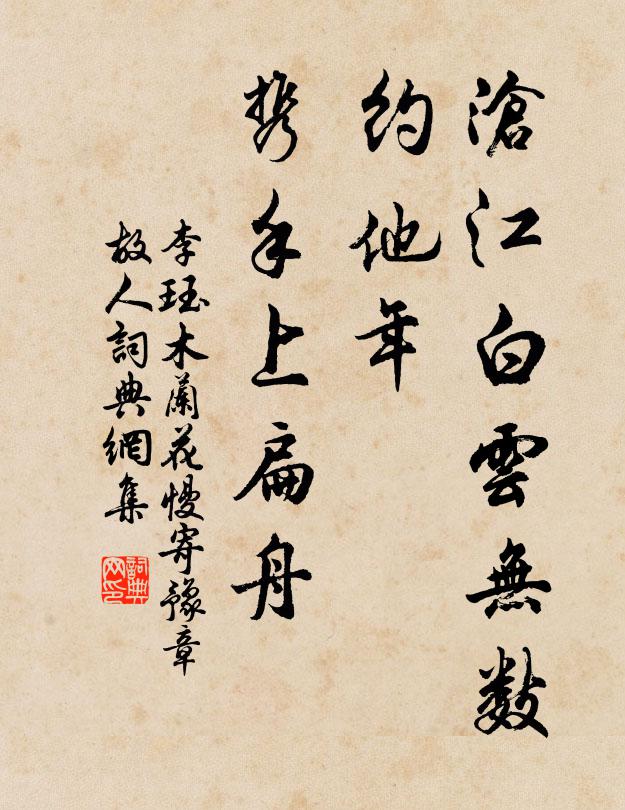 滄江白雲無數
約他年
攜手上扁舟
李珏木蘭花慢寄豫章
故人詞典網集
詞典网印